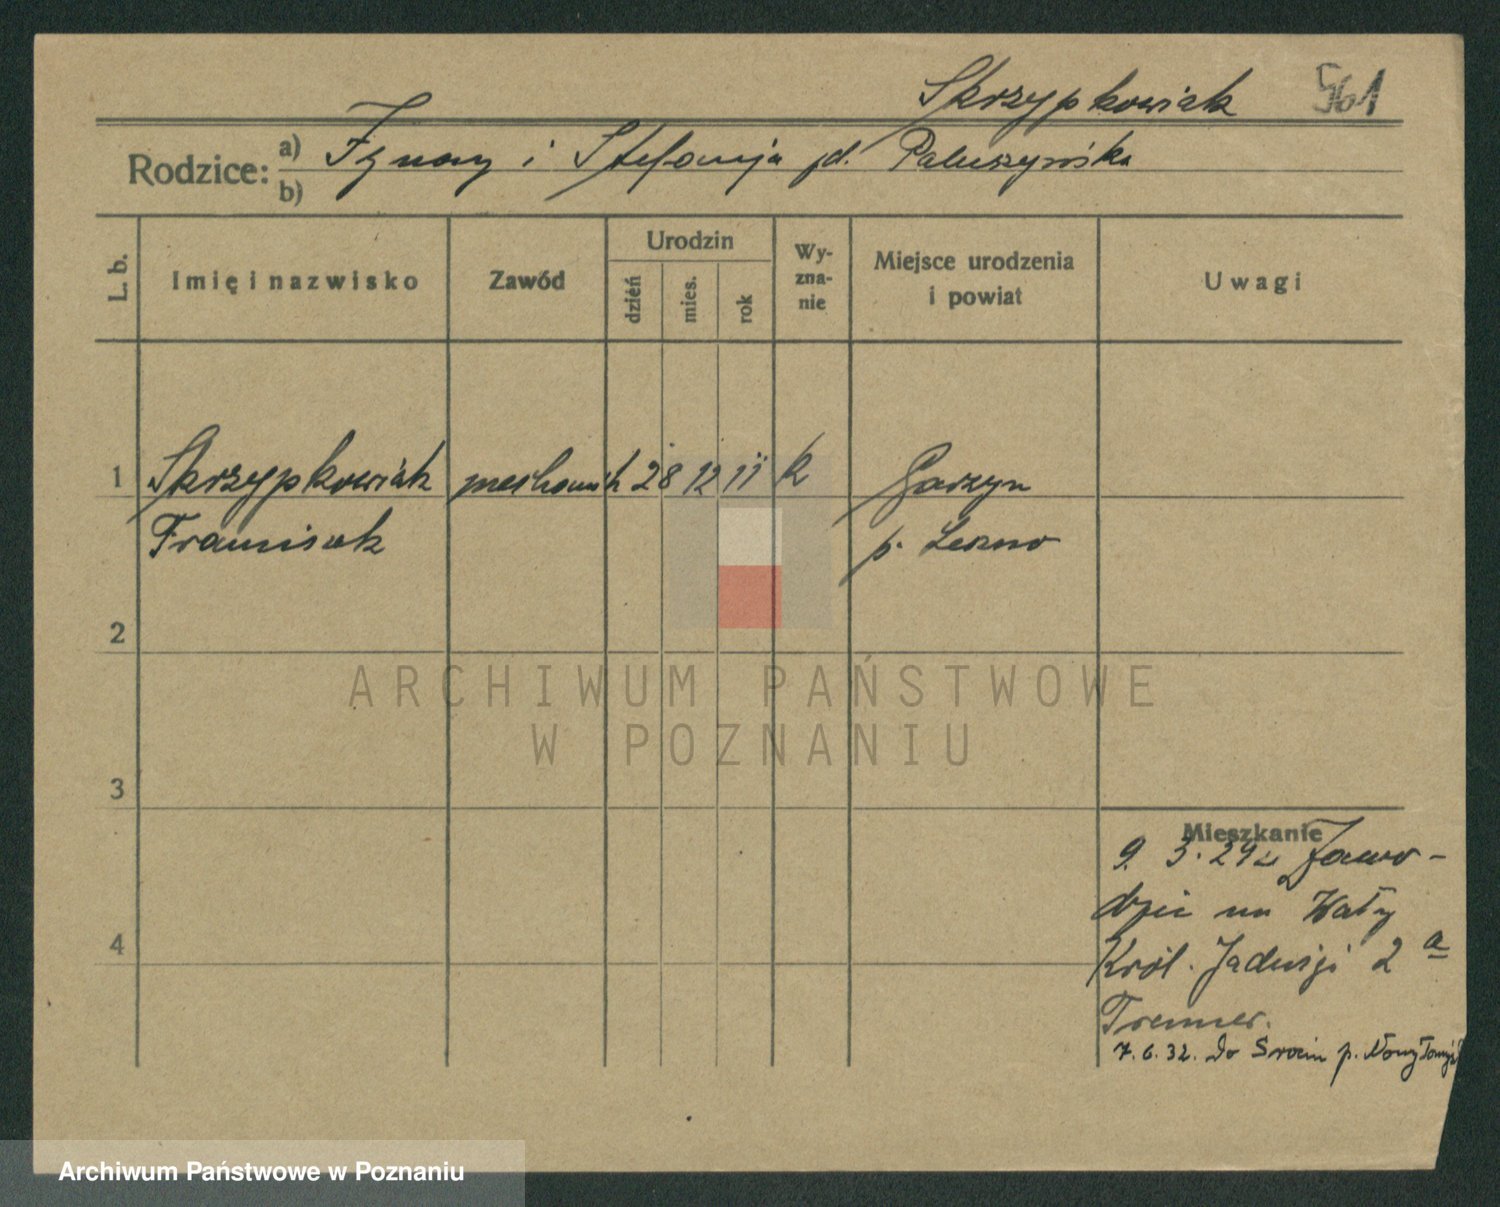 Skrzypkowiak 561
Rodzice: a) Ignacy i Stefanja zd. Paluszyńska
b)
L. b. Imię i nazwisko Zawód Urodzin dzień mies. rok Wyznanie Miejsce urodzenia i powiat Uwagi
1 Skrzypkowiak mechanik 28 12 11 k Garzyn
Franciszek p. Leszno
2
ARCHIWUM PAŃSTWOWE
W POZNANIU
3
Mieszkanie
9. 3. 29 z Zawo-
dzie na Wały
Król. Jadwigi 2 a
4
7. 6. 32. do p. Nowy Tomyśl
Archiwum Państwowe w Poznaniu